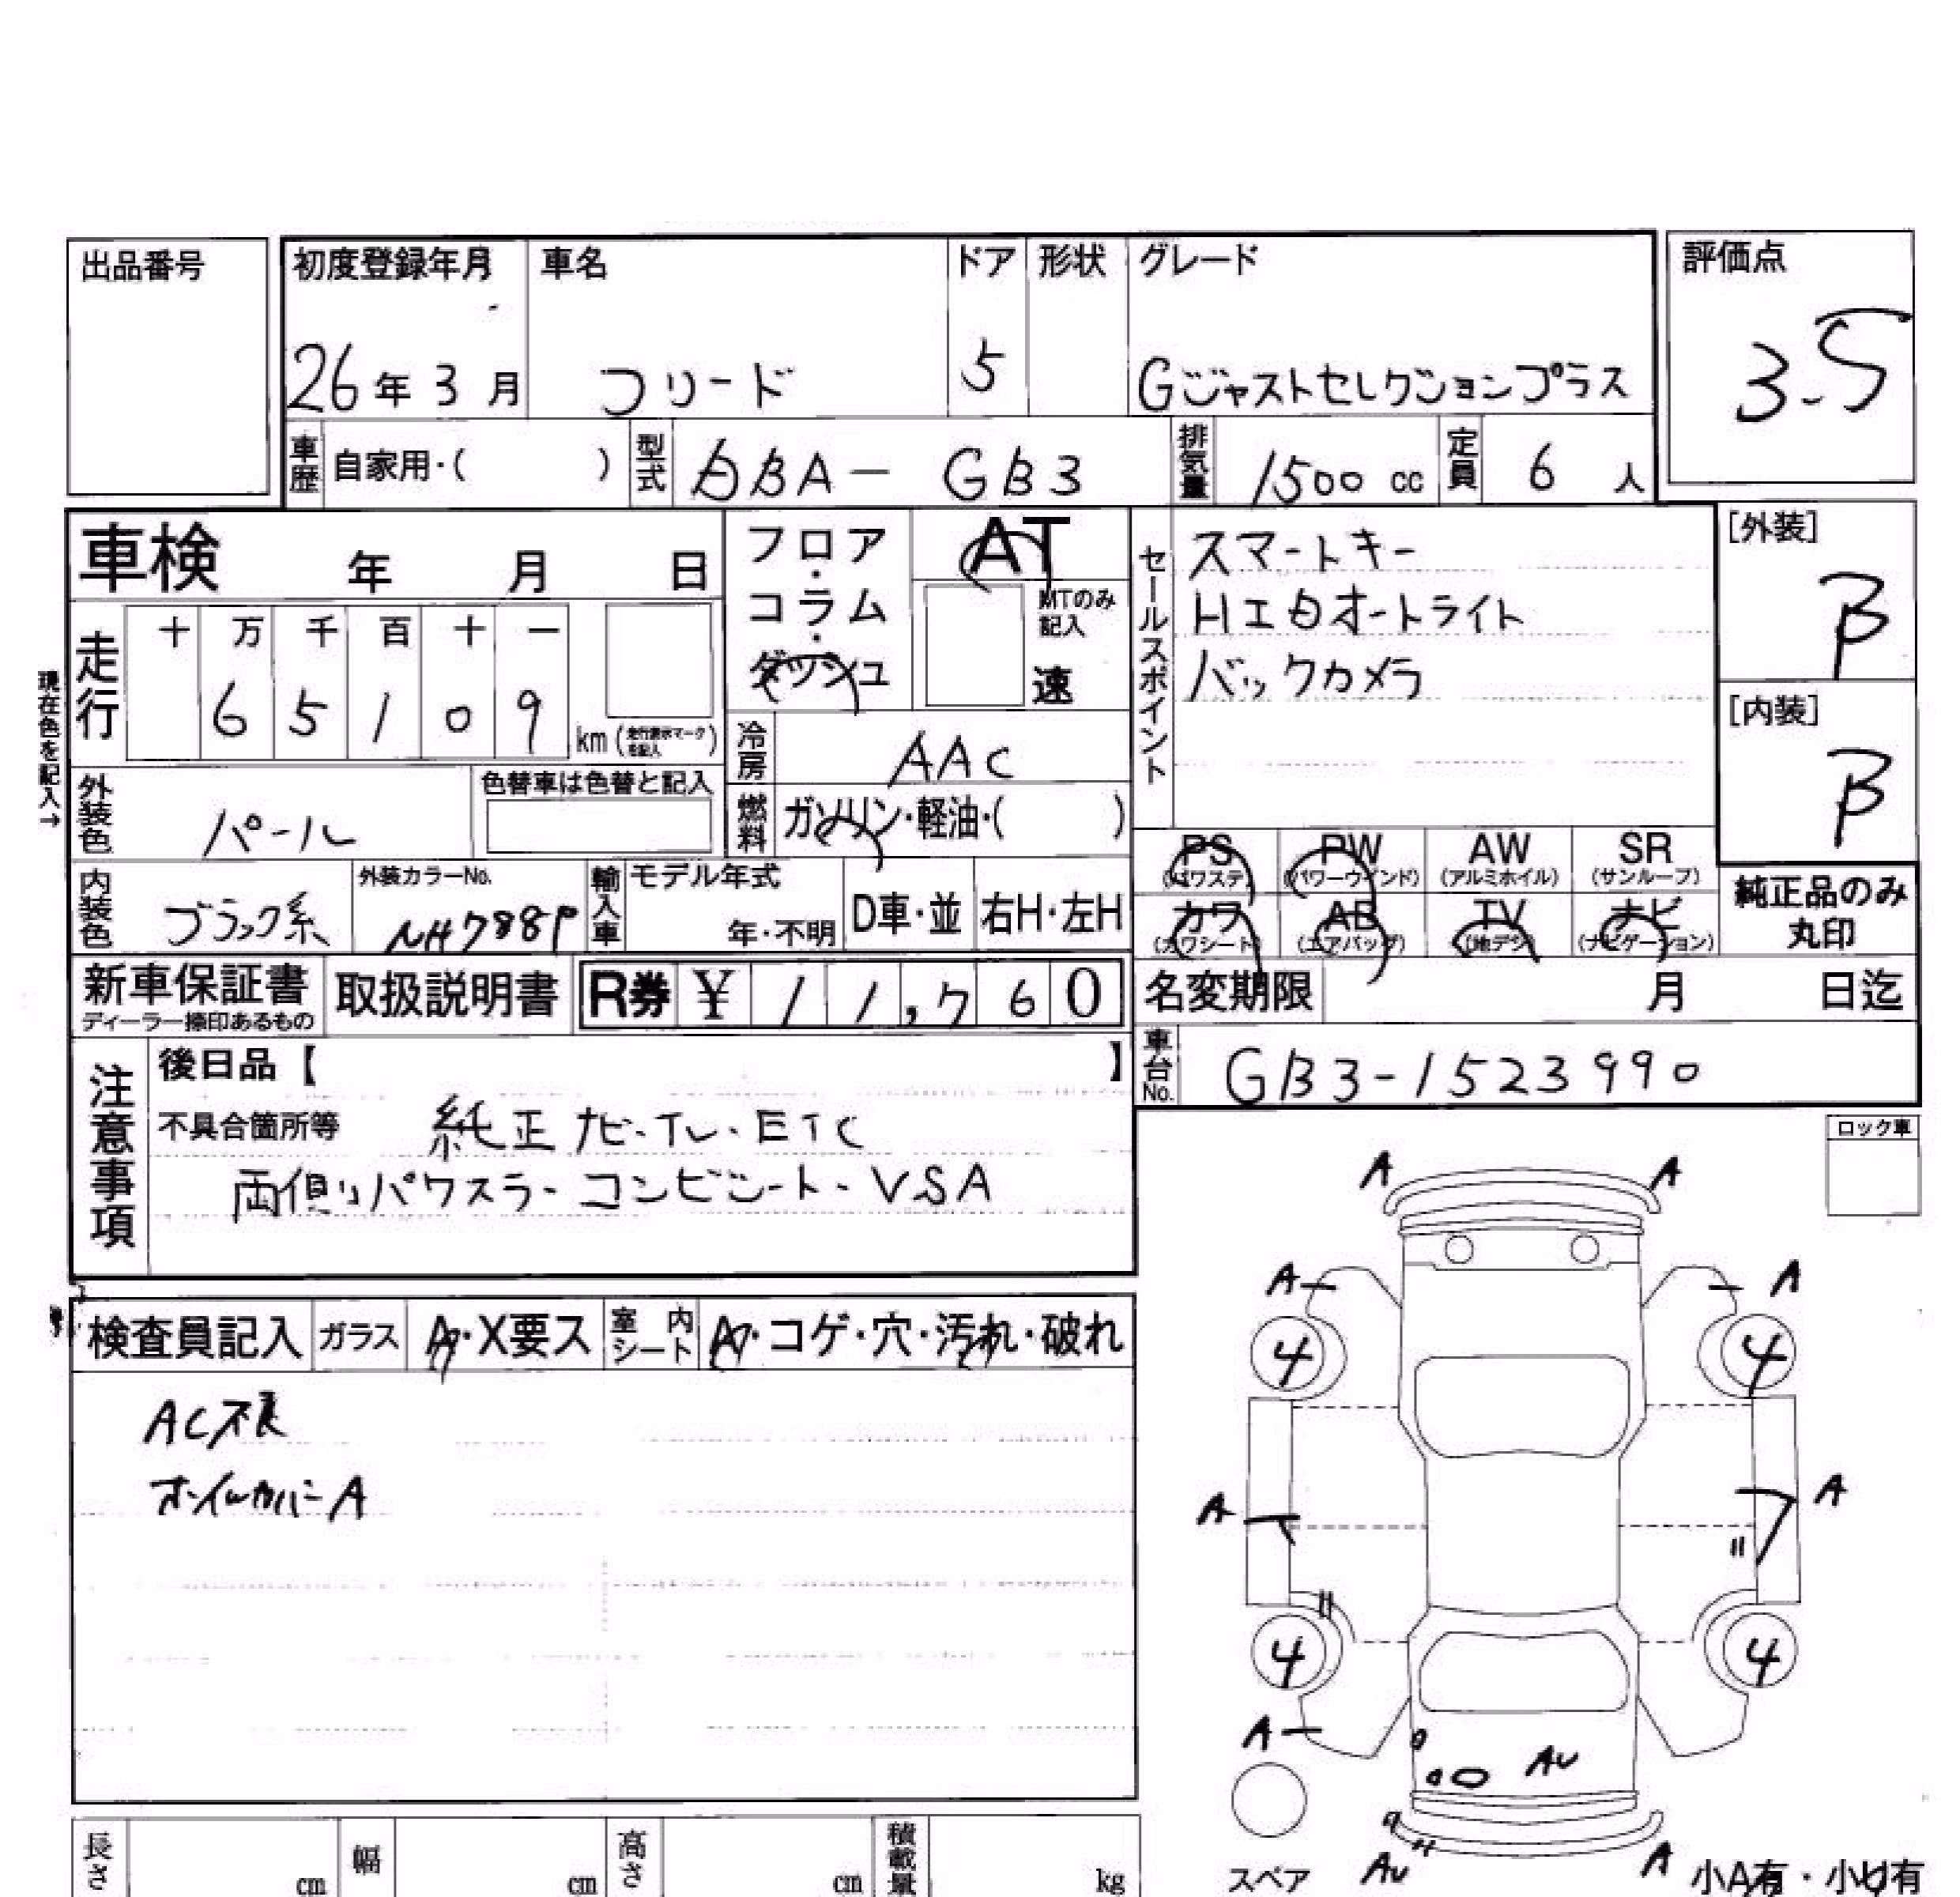 出品番号
初度登録年月 車名 ドア 形状 グレード 評価点
26年3月 フリード 5 Gジャストセレクションプラス 3.5
車歴 自家用・( ) 型式 DBA- GB3 排気量 1500 cc 定員 6 人
車検 年 月 日
フロア・コラム・ダッシュ
AT
MTのみ記入
速
セールスポイント
スマートキー
HID オートライト
バックカメラ
[外装]
B
[内装]
B
現在色を記入→
走行 十 万 千 百 十 一
6 5 1 0 9 km (走行表示マークを記入)
冷房 AAC
燃料 ガソリン・軽油・( )
外装色 パール 色替車は色替と記入
PS (パワステ) PW (パワーウインド) AW (アルミホイル) SR (サンルーフ)
カワ (カワシート) AB (エアバッグ) TV (地デジ) ナビ (ナビゲーション)
純正品のみ
丸印
内装色 ブラック系 外装カラーNo. NH788P 輸入車 モデル年式 年・不明 D車・並 右H・左H
新車保証書 取扱説明書 R券 ¥ 11,760 名変期限 月 日迄
ディーラー捺印あるもの
車台No. GB3-1523990
注意事項
後日品【 】
不具合箇所等 純正ナビ・TV・ETC
両側パワスラ・コンビシート・VSA
ロック車
検査員記入 ガラス A・X要ス 室内シート A・コゲ・穴・汚れ・破れ
AC不良
ホイルカバーA
A A
A A
4 4
A A
4 4
A AU
AU A
スペア 小A有・小U有
長さ cm 幅 cm 高さ cm 積載量 kg